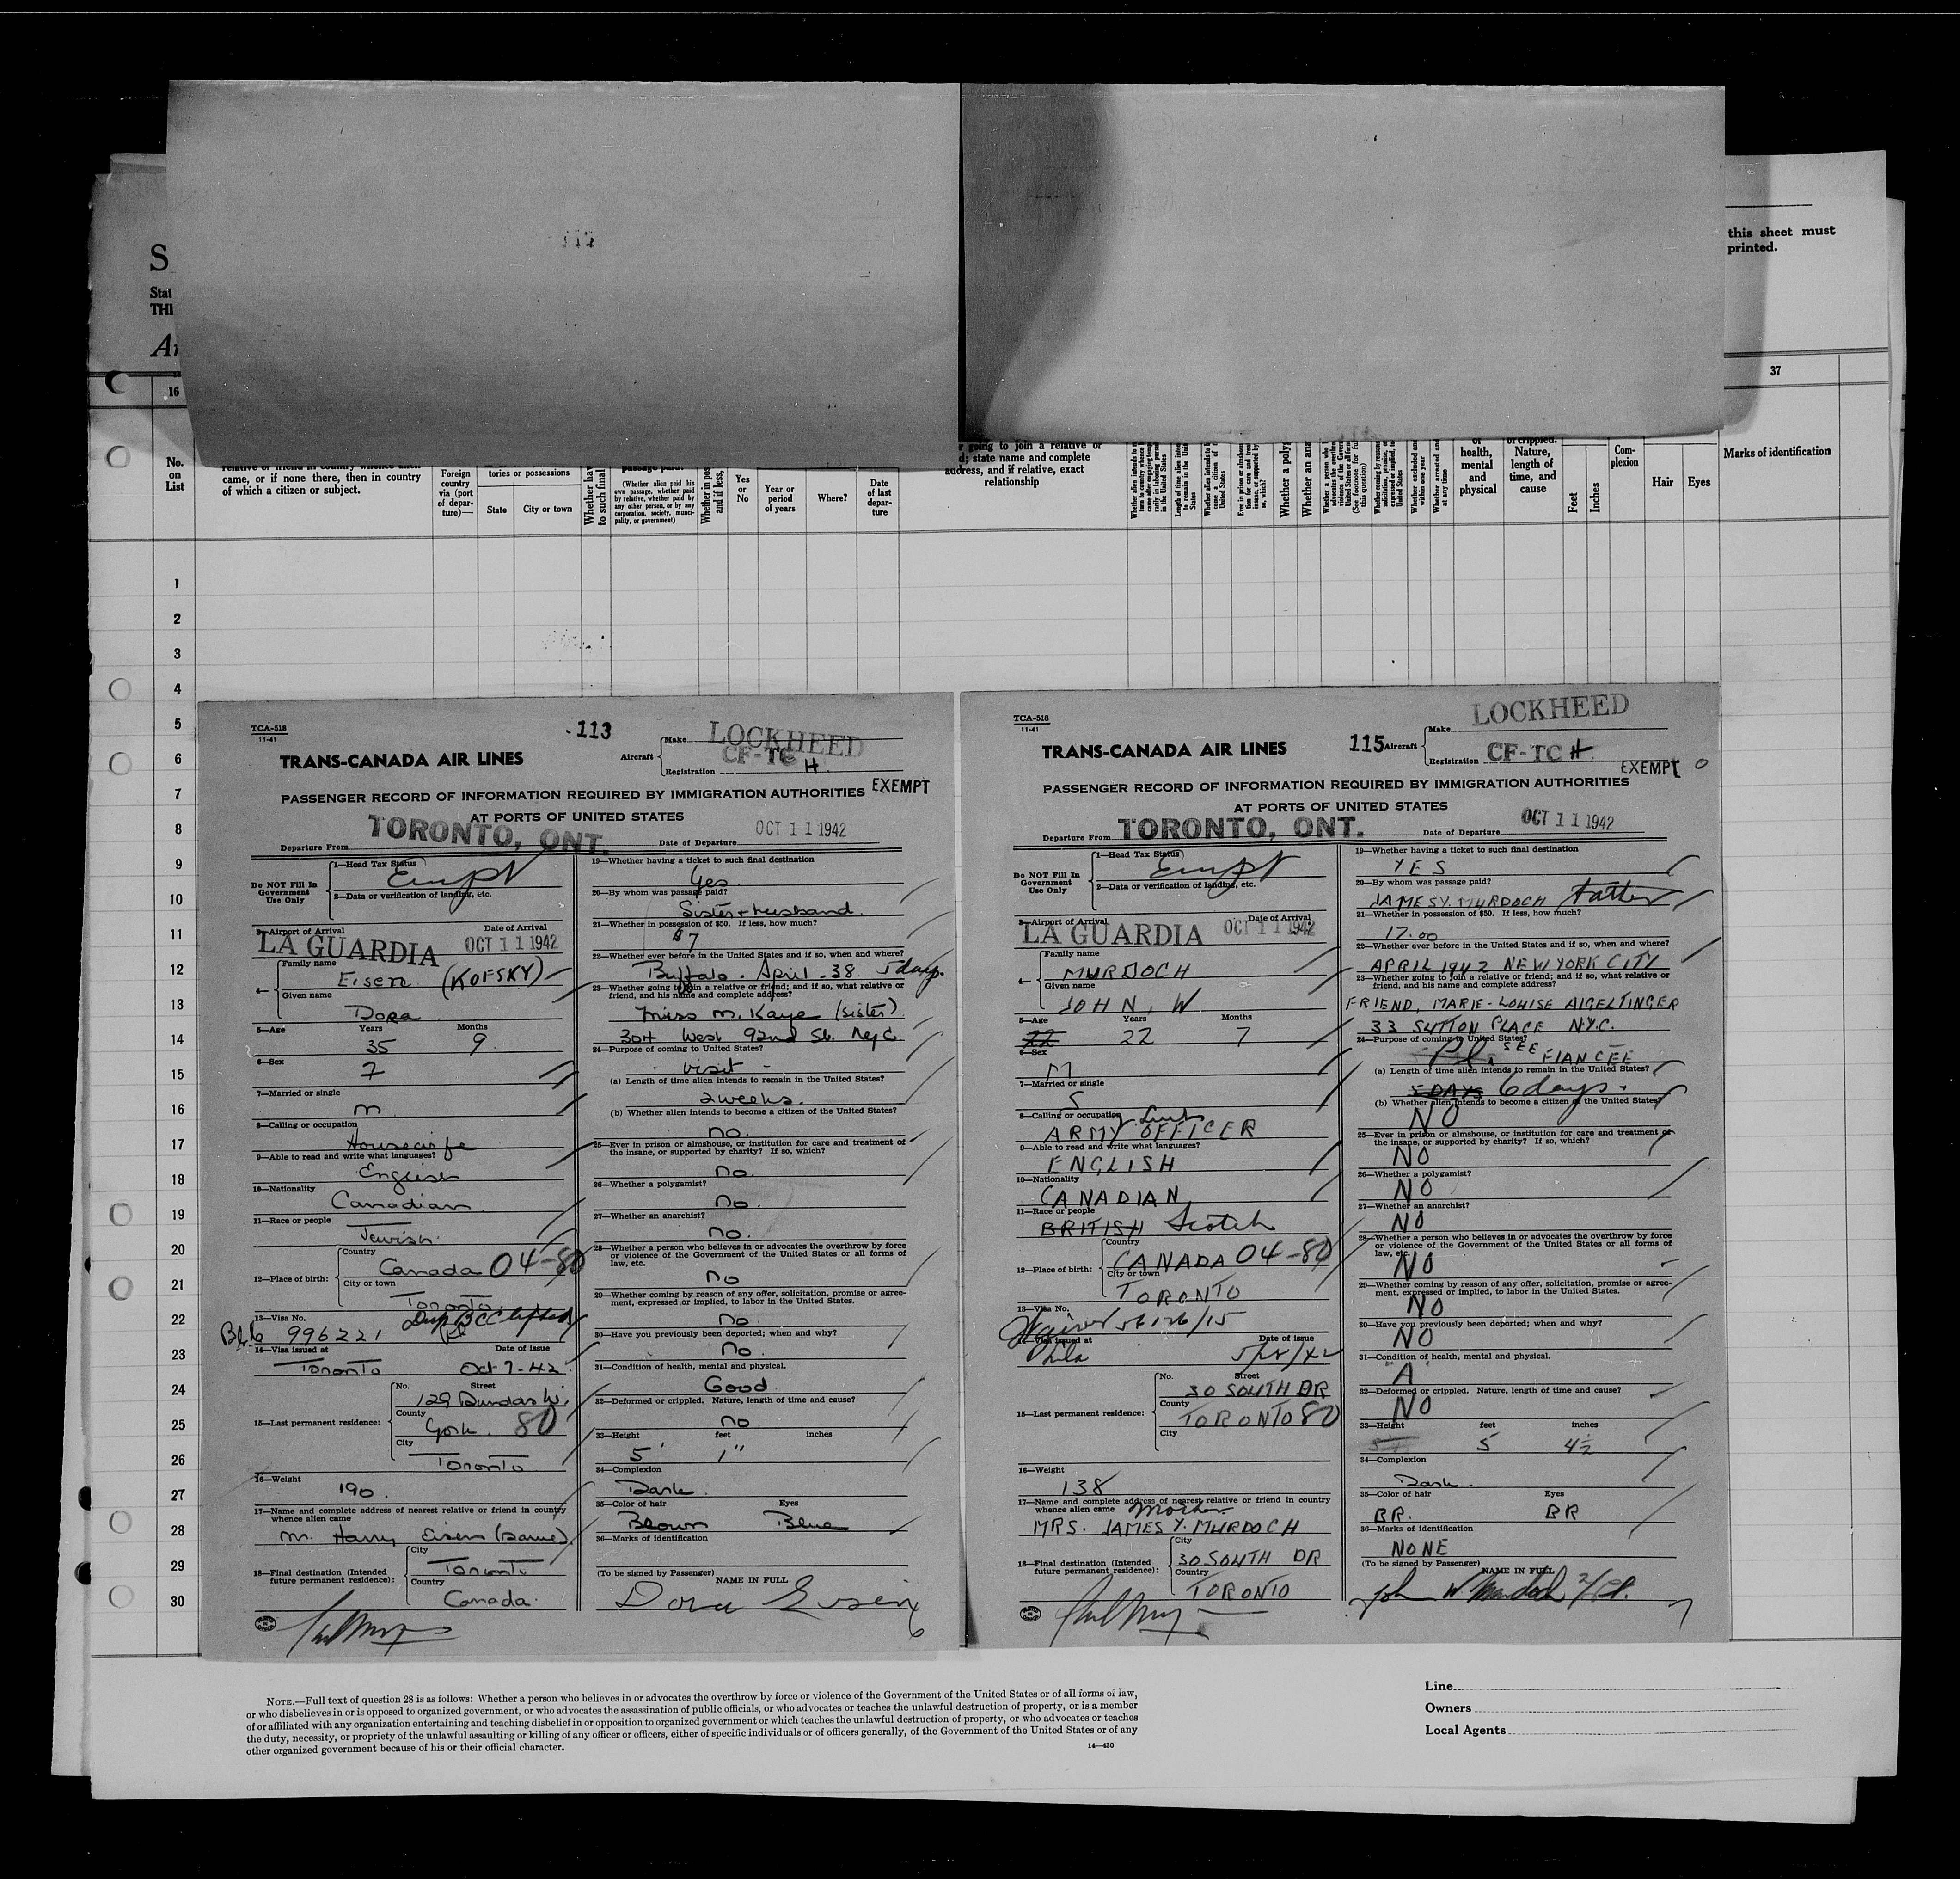 S
Stat
THI
this sheet must
printed.
16
37
No.
on
List
came, or if none there, then in country
of which a citizen or subject.
Foreign
country
via (port
of depar-
ture)—
tories or possessions
State
City or town
Whether hav
to such final
(Whether alien paid his
own passage, whether paid
by relative, whether paid by
any other person, or by any
corporation, society, munici-
pality, or government)
Whether in pos
and if less,
Yes
or
No
Year or
period
of years
Where?
Date
of last
depar-
ture
going to join a relative or
d; state name and complete
address, and if relative, exact
relationship
Whether a poly
Whether an ana
health,
mental
and
physical
or crippled.
Nature,
length of
time, and
cause
Feet
Inches
Com-
plexion
Hair
Eyes
Marks of identification
1
2
3
4
5
6
7
8
9
10
11
12
13
14
15
16
17
18
19
20
21
22
23
24
25
26
27
28
29
30
TCA-518
11-41
113
TRANS-CANADA AIR LINES
Aircraft
Make LOCKHEED
Registration CF-TC H.
EXEMPT
PASSENGER RECORD OF INFORMATION REQUIRED BY IMMIGRATION AUTHORITIES
AT PORTS OF UNITED STATES
Departure From TORONTO, ONT.
Date of Departure OCT 11 1942
Do NOT Fill In
Government
Use Only
1—Head Tax Status
2—Data or verification of landing, etc.
3—Airport of Arrival
Date of Arrival
LA GUARDIA OCT 11 1942
4—
Family name
Eisen (KOFSKY)
Given name
Dora
5—Age Years Months
35 9
6—Sex
7—Married or single
m
8—Calling or occupation
Housewife
9—Able to read and write what languages?
English
10—Nationality
Canadian
11—Race or people
Jewish
12—Place of birth:
Country
Canada 04-80
City or town
Toronto
13—Visa No.
996221
14—Visa issued at Date of issue
Toronto Oct-7-42
15—Last permanent residence:
No. Street
129 Dundas W.
County
York. 80
City
Toronto
16—Weight
190
17—Name and complete address of nearest relative or friend in country
whence alien came
Mr. Harry Eisen (same)
18—Final destination (Intended
future permanent residence):
City
Toronto
Country
Canada
19—Whether having a ticket to such final destination
Yes
20—By whom was passage paid?
Sister + husband.
21—Whether in possession of $50. If less, how much?
$7
22—Whether ever before in the United States and if so, when and where?
Buffalo. April-38 5 days.
23—Whether going to join a relative or friend; and if so, what relative or
friend, and his name and complete address?
Miss M. Kaye (sister)
304 West 92nd St. NYC
24—Purpose of coming to United States?
Visit -
(a) Length of time alien intends to remain in the United States?
2 weeks.
(b) Whether alien intends to become a citizen of the United States?
no.
25—Ever in prison or almshouse, or institution for care and treatment of
the insane, or supported by charity? If so, which?
no.
26—Whether a polygamist?
no.
27—Whether an anarchist?
no.
28—Whether a person who believes in or advocates the overthrow by force
or violence of the Government of the United States or all forms of
law, etc.
no
29—Whether coming by reason of any offer, solicitation, promise or agree-
ment, expressed or implied, to labor in the United States.
no
30—Have you previously been deported; when and why?
no.
31—Condition of health, mental and physical.
Good
32—Deformed or crippled. Nature, length of time and cause?
no
33—Height feet inches
5' 1"
34—Complexion
Dark
35—Color of hair Eyes
Brown Blue
36—Marks of identification
(To be signed by Passenger)
NAME IN FULL
Dora Eisen
6
TCA-518
11-41
115
TRANS-CANADA AIR LINES
Aircraft
Make LOCKHEED
Registration CF-TC H
EXEMPT
PASSENGER RECORD OF INFORMATION REQUIRED BY IMMIGRATION AUTHORITIES
AT PORTS OF UNITED STATES
Departure From TORONTO, ONT.
Date of Departure OCT 11 1942
Do NOT Fill In
Government
Use Only
1—Head Tax Status
2—Data or verification of landing, etc.
3—Airport of Arrival
Date of Arrival
LA GUARDIA OCT 11 1942
4—
Family name
MURDOCH
Given name
JOHN, W
5—Age Years Months
22 22 7
6—Sex
M
7—Married or single
S
8—Calling or occupation
ARMY OFFICER
9—Able to read and write what languages?
ENGLISH
10—Nationality
CANADIAN
11—Race or people
BRITISH Scotch
12—Place of birth:
Country
CANADA 04-80
City or town
TORONTO
13—Visa No.
Waiver 56126/15
14—Visa issued at Date of issue
Phila
15—Last permanent residence:
No. Street
30 SOUTH DR
County
TORONTO 80
City
16—Weight
138
17—Name and complete address of nearest relative or friend in country
whence alien came Mother
MRS. JAMES Y. MURDOCH
18—Final destination (Intended
future permanent residence):
City
30 SOUTH DR
Country
TORONTO
19—Whether having a ticket to such final destination
YES
20—By whom was passage paid?
JAMES Y. MURDOCH Father
21—Whether in possession of $50. If less, how much?
17.00
22—Whether ever before in the United States and if so, when and where?
APRIL 1942 NEW YORK CITY
23—Whether going to join a relative or friend; and if so, what relative or
friend, and his name and complete address?
FRIEND, MARIE-LOUISE AIGELTINGER
33 SUTTON PLACE N.Y.C.
24—Purpose of coming to United States?
SEE FIANCEE
(a) Length of time alien intends to remain in the United States?
5 DAYS 6 days.
(b) Whether alien intends to become a citizen of the United States?
NO
25—Ever in prison or almshouse, or institution for care and treatment of
the insane, or supported by charity? If so, which?
NO
26—Whether a polygamist?
NO
27—Whether an anarchist?
NO
28—Whether a person who believes in or advocates the overthrow by force
or violence of the Government of the United States or all forms of
law, etc.
NO
29—Whether coming by reason of any offer, solicitation, promise or agree-
ment, expressed or implied, to labor in the United States.
NO
30—Have you previously been deported; when and why?
NO
31—Condition of health, mental and physical.
A
32—Deformed or crippled. Nature, length of time and cause?
NO
33—Height feet inches
5 4½
34—Complexion
Dark.
35—Color of hair Eyes
BR. BR
36—Marks of identification
NONE
(To be signed by Passenger)
NAME IN FULL
John W. Murdoch
NOTE.—Full text of question 28 is as follows: Whether a person who believes in or advocates the overthrow by force or violence of the Government of the United States or of all forms of law,
or who disbelieves in or is opposed to organized government, or who advocates the assassination of public officials, or who advocates or teaches the unlawful destruction of property, or is a member
of or affiliated with any organization entertaining and teaching disbelief in or opposition to organized government or which teaches the unlawful destruction of property, or who advocates or teaches
the duty, necessity, or propriety of the unlawful assaulting or killing of any officer or officers, either of specific individuals or of officers generally, of the Government of the United States or of any
other organized government because of his or their official character.
14—430
Line
Owners
Local Agents